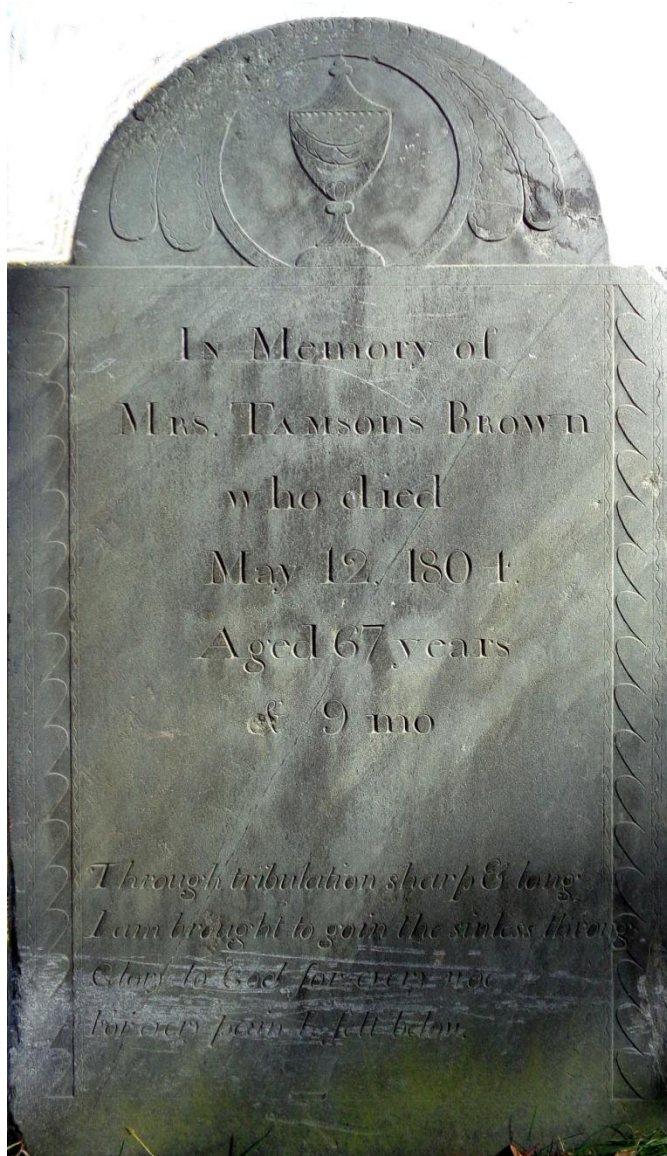 In Memory of
Mrs. Tamsons Brown
who died
May 12, 1804.
Aged 67 years
& 9 mo
Through tribulation sharp & long
I am brought to goin the sinless throng
Glory to God for every woe
For every pain I felt below.